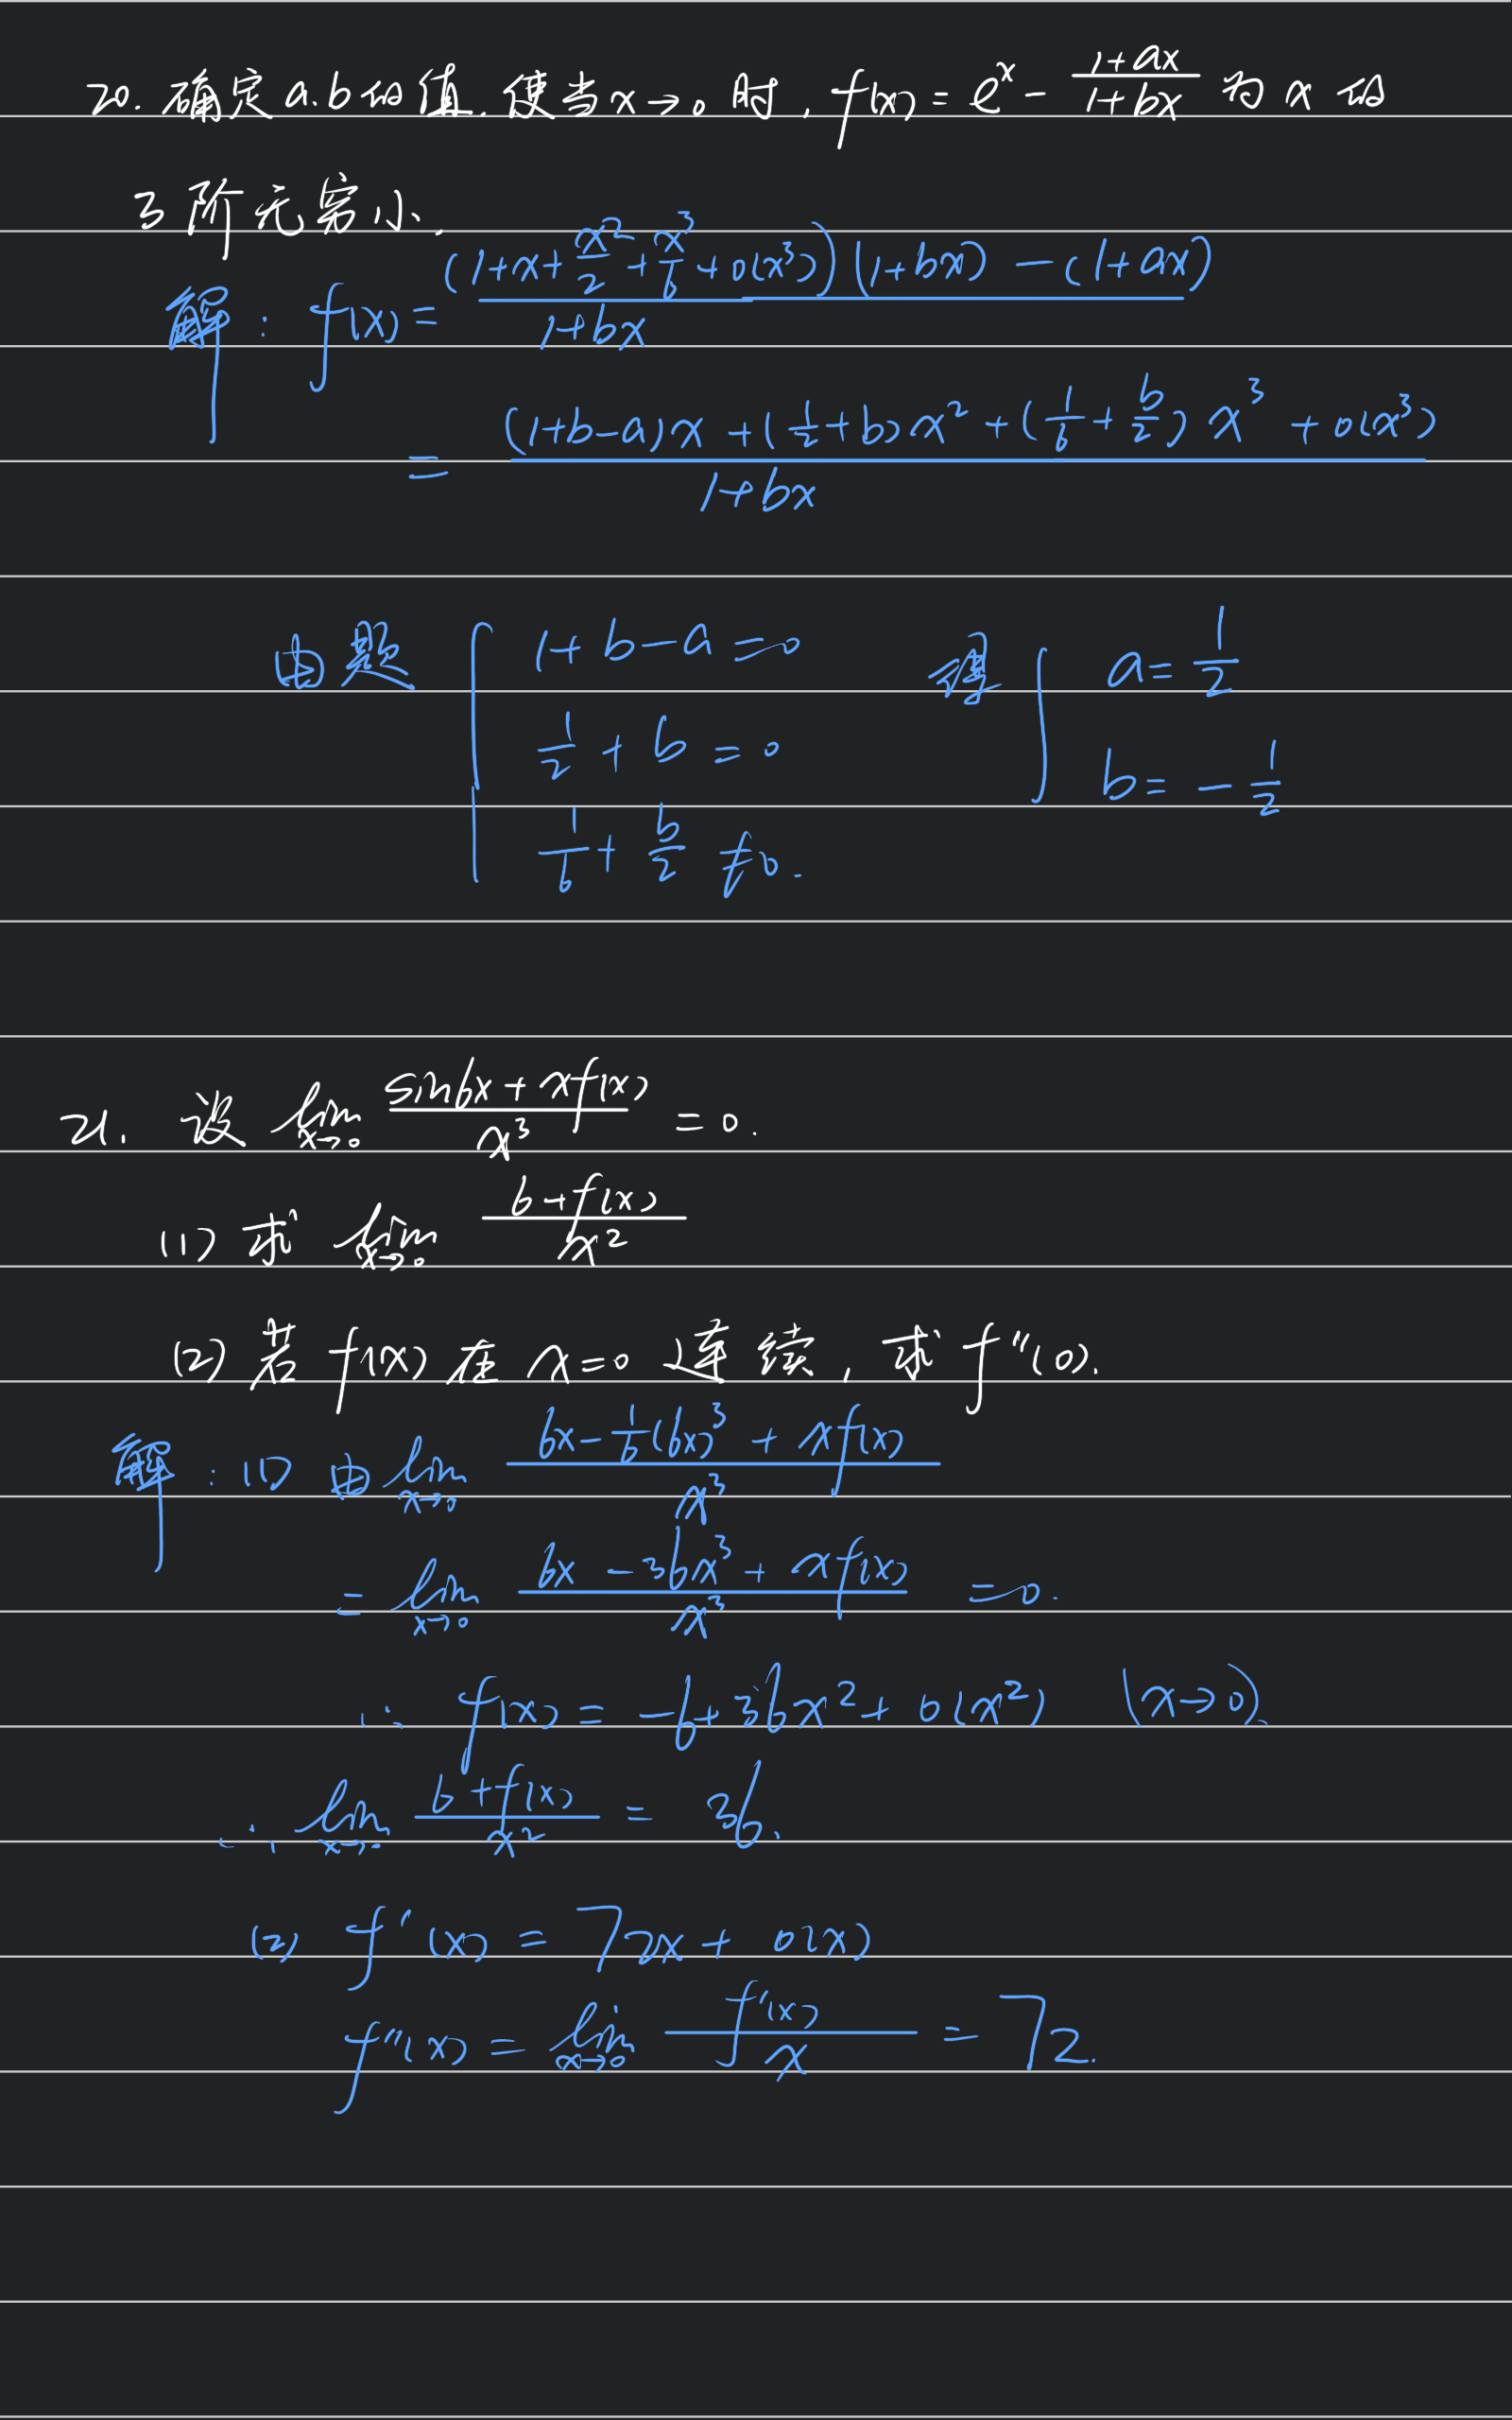 20. 确定a.b的值.使当x→0时,f(x)=e^x-(1+ax)/(1+bx)为x的
3阶无穷小.
解:f(x)=((1+x+x²/2+x³/6+o(x³))(1+bx)-(1+ax))/(1+bx)
=((1+b-a)x+(1/2+b)x²+(1/6+b/2)x³+o(x³))/(1+bx)
由题 { 1+b-a=0 得 { a=1/2
1/2+b=0 b=-1/2
1/6+b/2≠0.
21. 设 lim x→0 (sin6x+xf(x))/x³=0.
(1) 求 lim x→0 (6+f(x))/x²
(2) 若f(x)在x=0连续,求f''(0).
解:(1) 由 lim x→0 (6x-1/6(6x)³+xf(x))/x³
= lim x→0 (6x-36x³+xf(x))/x³=0.
∴ f(x)=-6+36x²+o(x²) (x→0).
∴ lim x→0 (6+f(x))/x²=36.
(2) f'(x)=72x+o(x)
f''(x)=lim x→0 f'(x)/x=72.